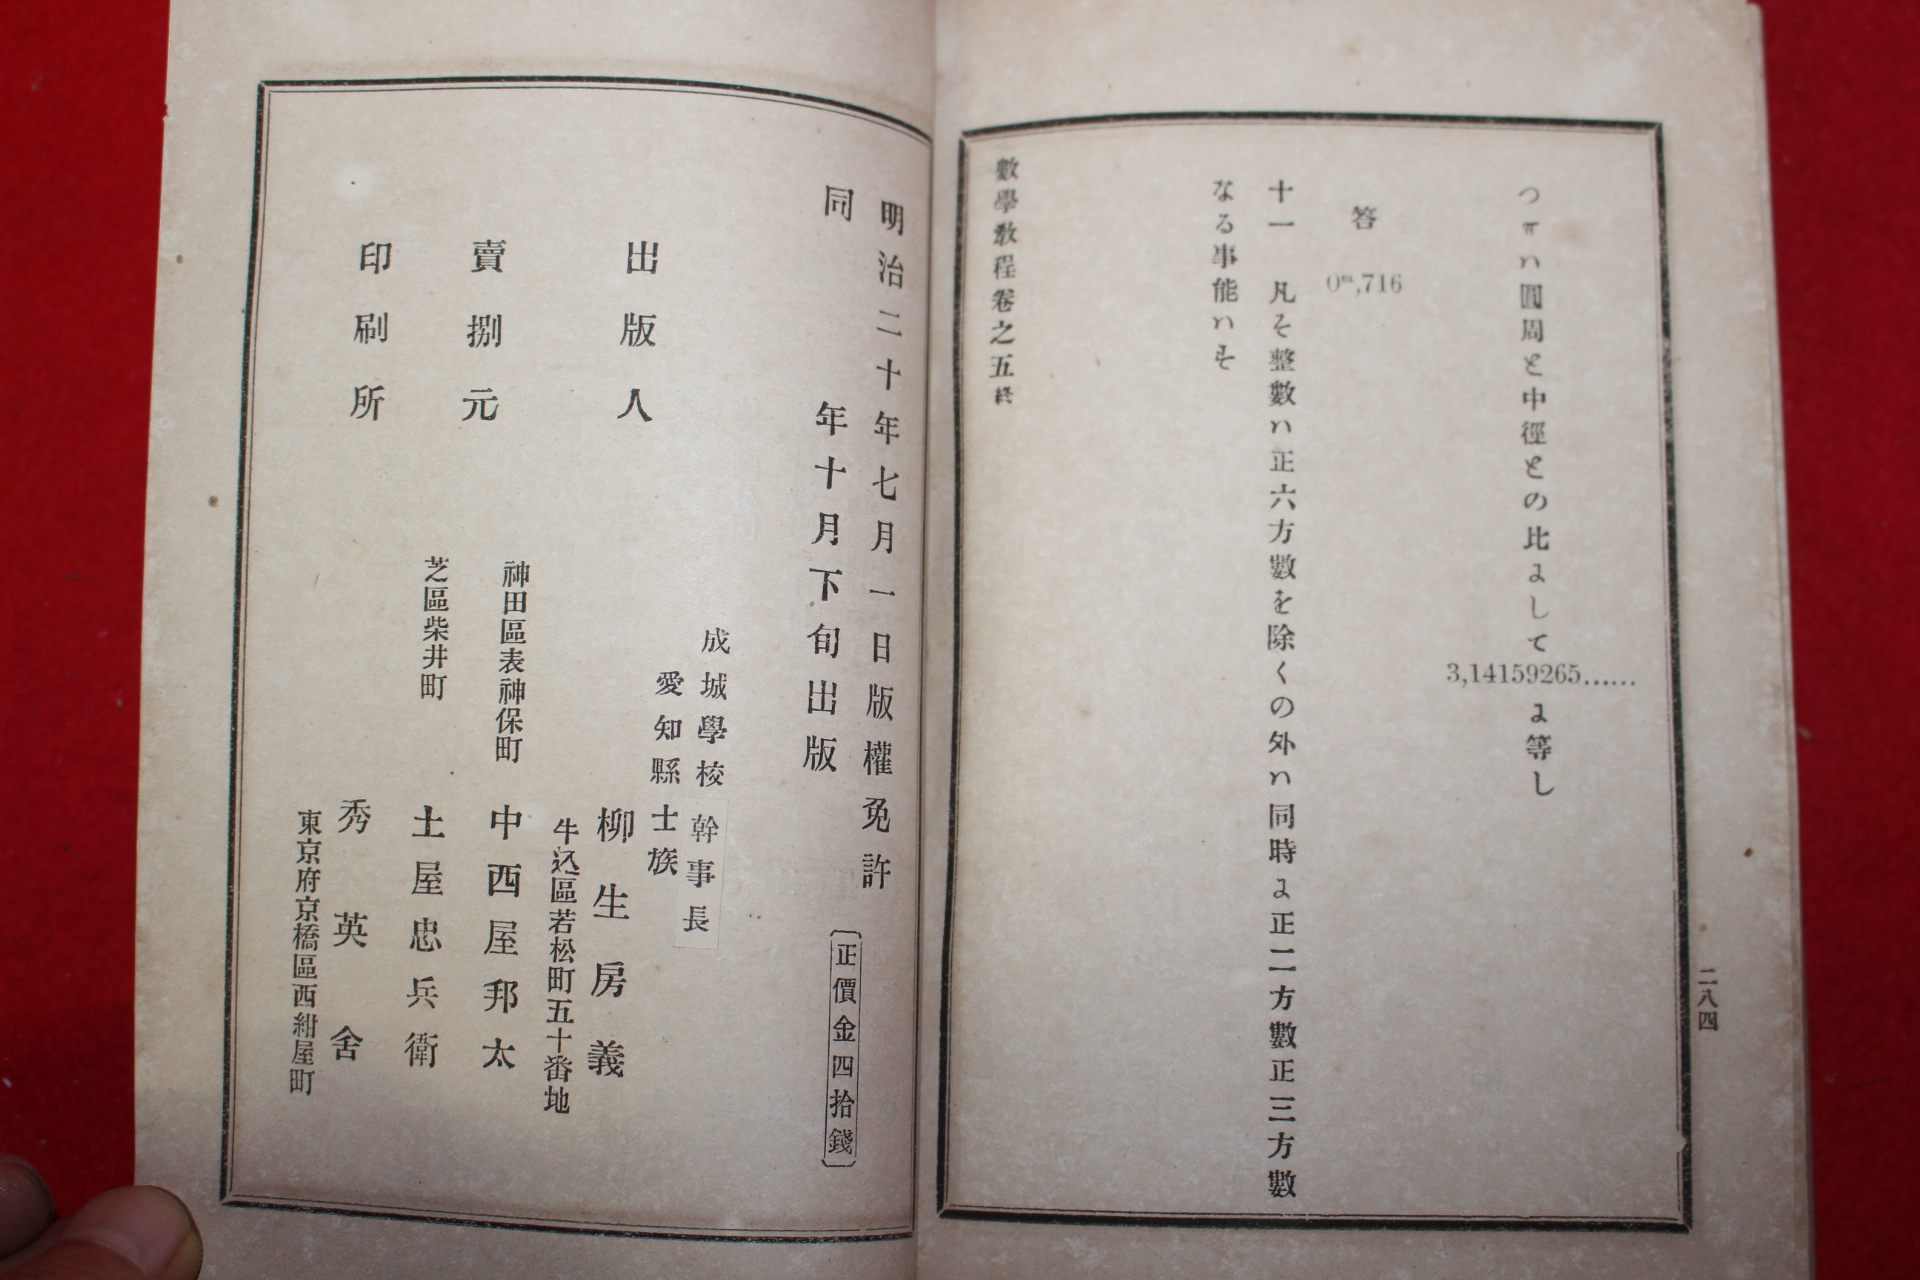 つπハ圓周と中徑との比よして3,14159265……よ等し
答　0ᵐ,716
十一　凡そ整數ハ正六方數を除くの外ハ同時よ正二方數正三方數
なる事能ハず
數學敎程卷之五終
二八四
明治二十年七月一日版權免許
同　年十月下旬出版
正價金四拾錢
成城學校幹事長
愛知縣士族
出版人　柳生房義
牛込區若松町五十番地
神田區表神保町
賣捌元　中西屋邦太
芝區柴井町
土屋忠兵衛
印刷所　秀英舍
東京府京橋區西紺屋町